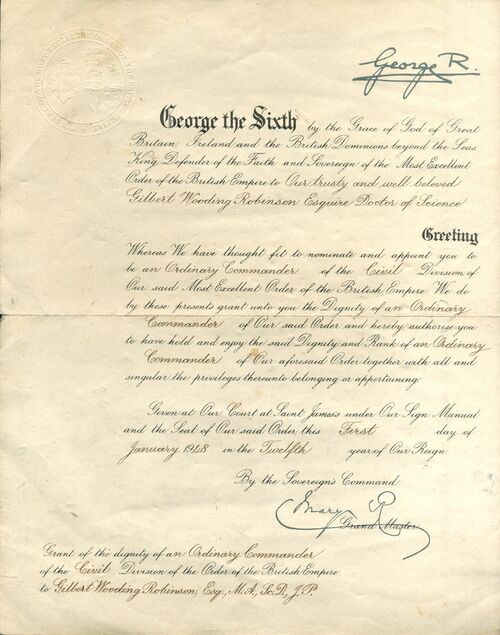 George R.
George the Sixth by the Grace of God of Great
Britain Ireland and the British Dominions beyond the Seas
King, Defender of the Faith and Sovereign of the Most Excellent
Order of the British Empire to Our trusty and well beloved
Gilbert Wooding Robinson Esquire Doctor of Science
Greeting
Whereas We have thought fit to nominate and appoint you to
be an Ordinary Commander of the Civil Division of
Our said Most Excellent Order of the British Empire We do
by these presents grant unto you the Dignity of an Ordinary
Commander of Our said Order and hereby authorise you
to have hold and enjoy the said Dignity and Rank of an Ordinary
Commander of Our aforesaid Order together with all and
singular the privileges thereunto belonging or appertaining
Given at Our Court at Saint James's under Our Sign Manual
and the Seal of Our said Order this First day of
January 1948 in the Twelfth year of Our Reign
By the Sovereign's Command
Mary R
Grand Master
Grant of the dignity of an Ordinary Commander
of the Civil Division of the Order of the British Empire
to Gilbert Wooding Robinson, Esq., M.A., Sc.D., J.P.